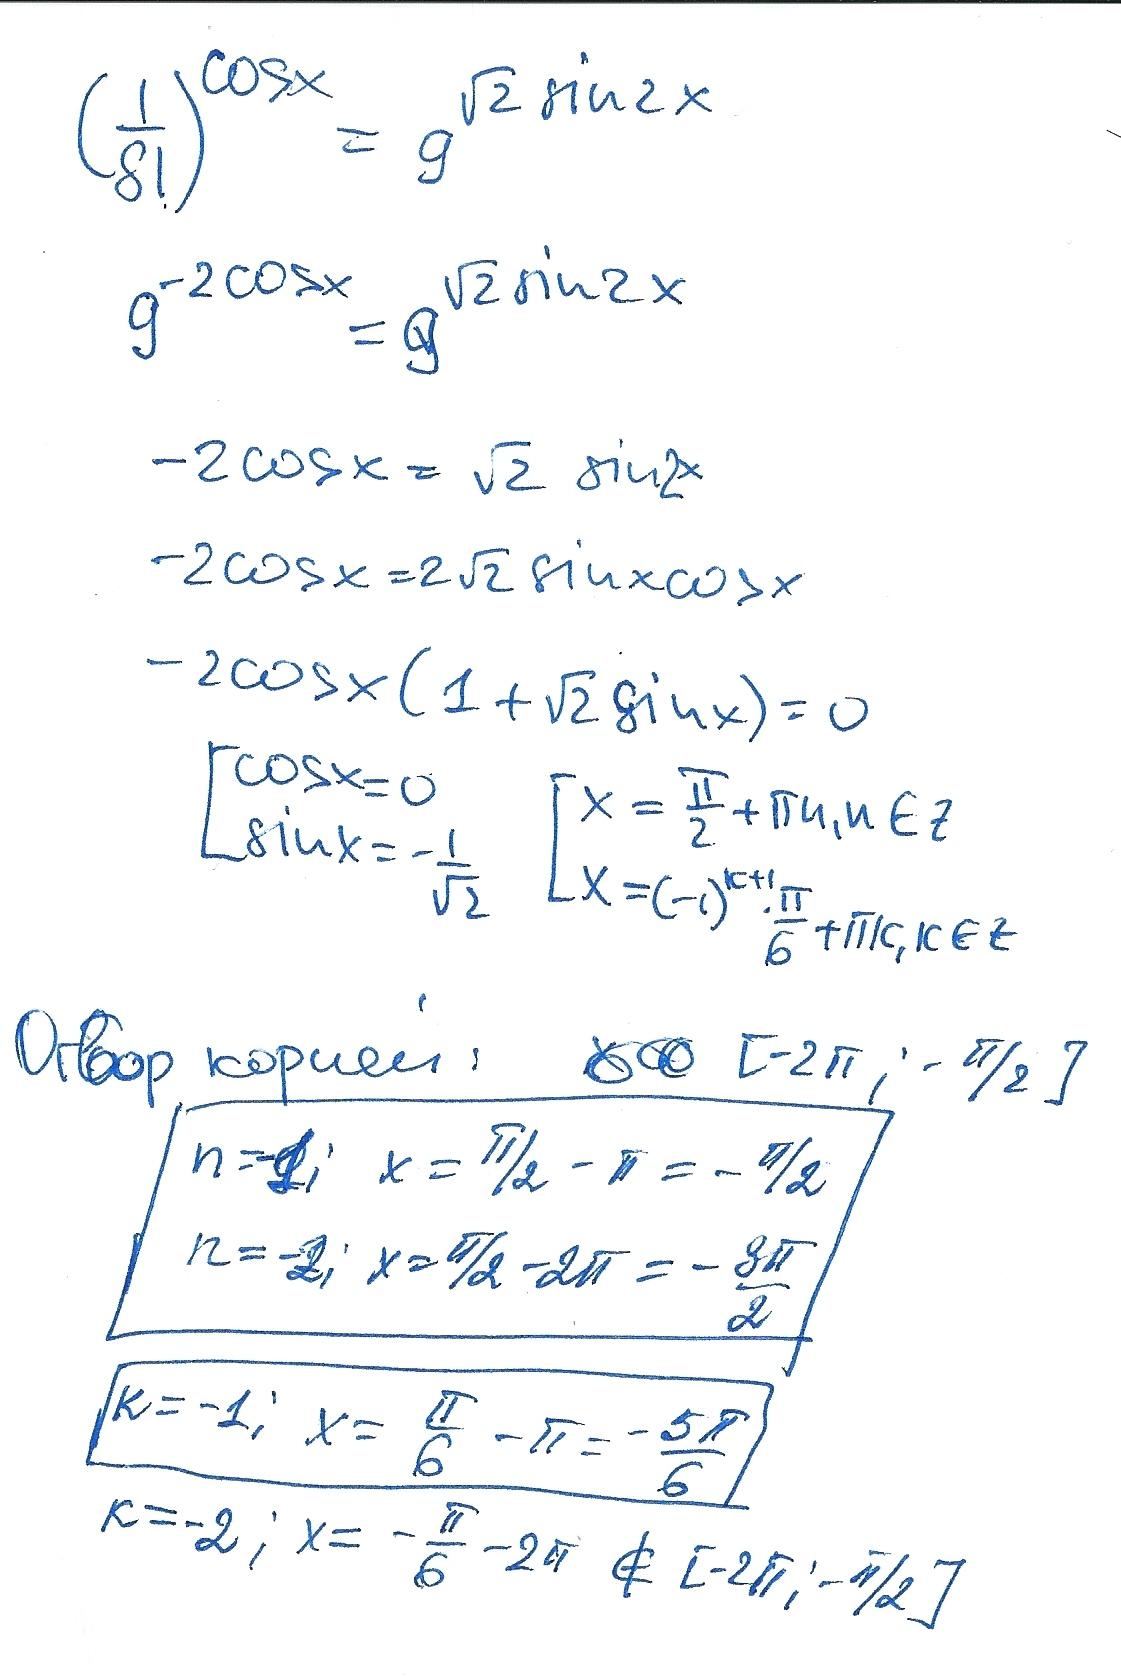 (1/81)^cosx = 9^√2 sin2x
9^-2cosx = 9^√2 sin2x
-2cosx = √2 sin2x
-2cosx = 2√2 sinxcosx
-2cosx(1+√2 sinx) = 0
[cosx=0 [x = π/2 + πn, n∈Z
sinx = -1/√2 x = (-1)^k+1 · π/6 + πk, k∈Z
Отбор корней: [-2π; -π/2]
n=-1; x = π/2 - π = -π/2
n=-2; x = π/2 - 2π = -3π/2
k=-1; x = π/6 - π = -5π/6
k=-2; x = -π/6 - 2π ∉ [-2π; -π/2]